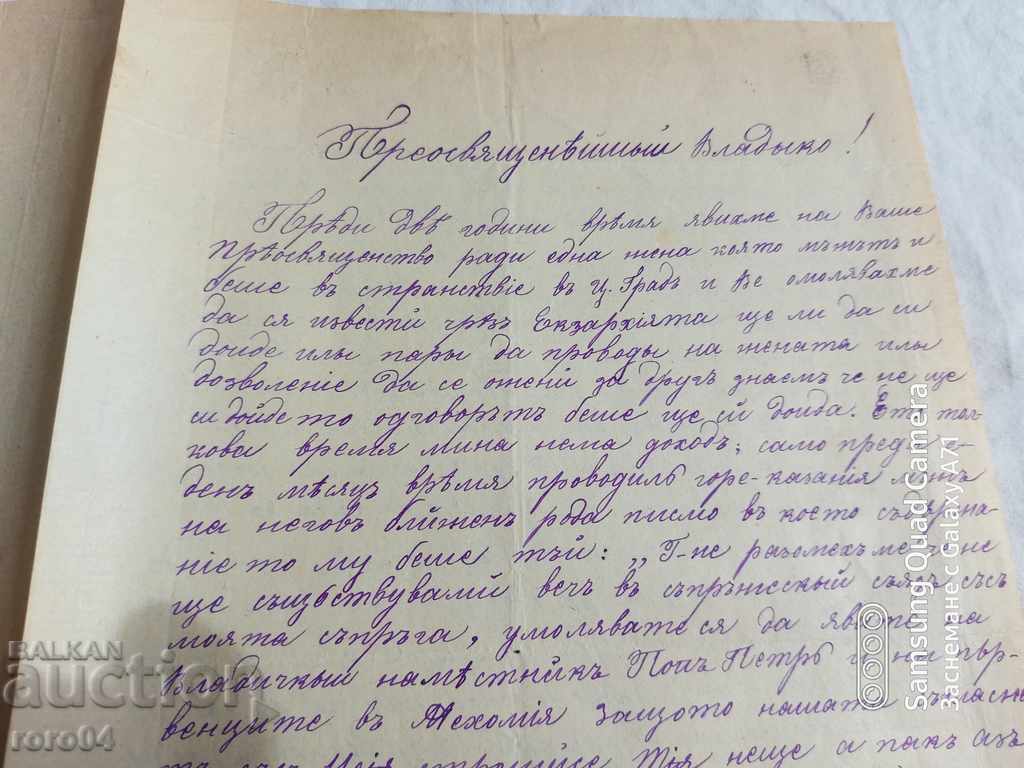 Преосвященѣйшый Владыко!
Прѣди двѣ години врѣмя явихме на Ваше
Прѣосвященство ради една жена която мъжътъ и
беше въ странствіе въ Ц. Градъ и Ве омолявахме
да ся извести чрѣзъ Екзархіята ще ли да си
дойде илы пары да проводы на жената илы
дозволеніе да се ожени за другъ знаемъ че не ще
си дойде то одговорътъ беше ще й дойда. Ето тол-
кова время мина нема доходъ; само преди е-
денъ мѣсяцъ врѣмя проводилъ горе-казания мъжъ
на неговъ ближенъ рода писмо въ което съдържа-
ніе то му беше тъй: „Г-не разомехъме че не
ще съществувамй вечъ въ съпръжескый съязъ съсъ
моята съпръга, умолявате ся да явите на
Владичкый намѣстникъ Попъ Петръ и на пър-
венците въ Мехомія защото нашата съгласно
тъ съсъ нея неще а пакъ азъ
BALKAN
auction
roro04
Samsung Quad Camera
Заснемане с Galaxy A71